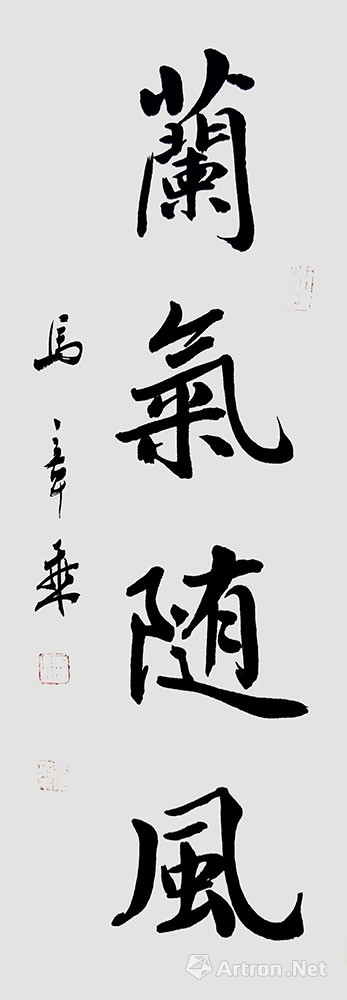 蘭氣随風
馬章乗
Artron.Net